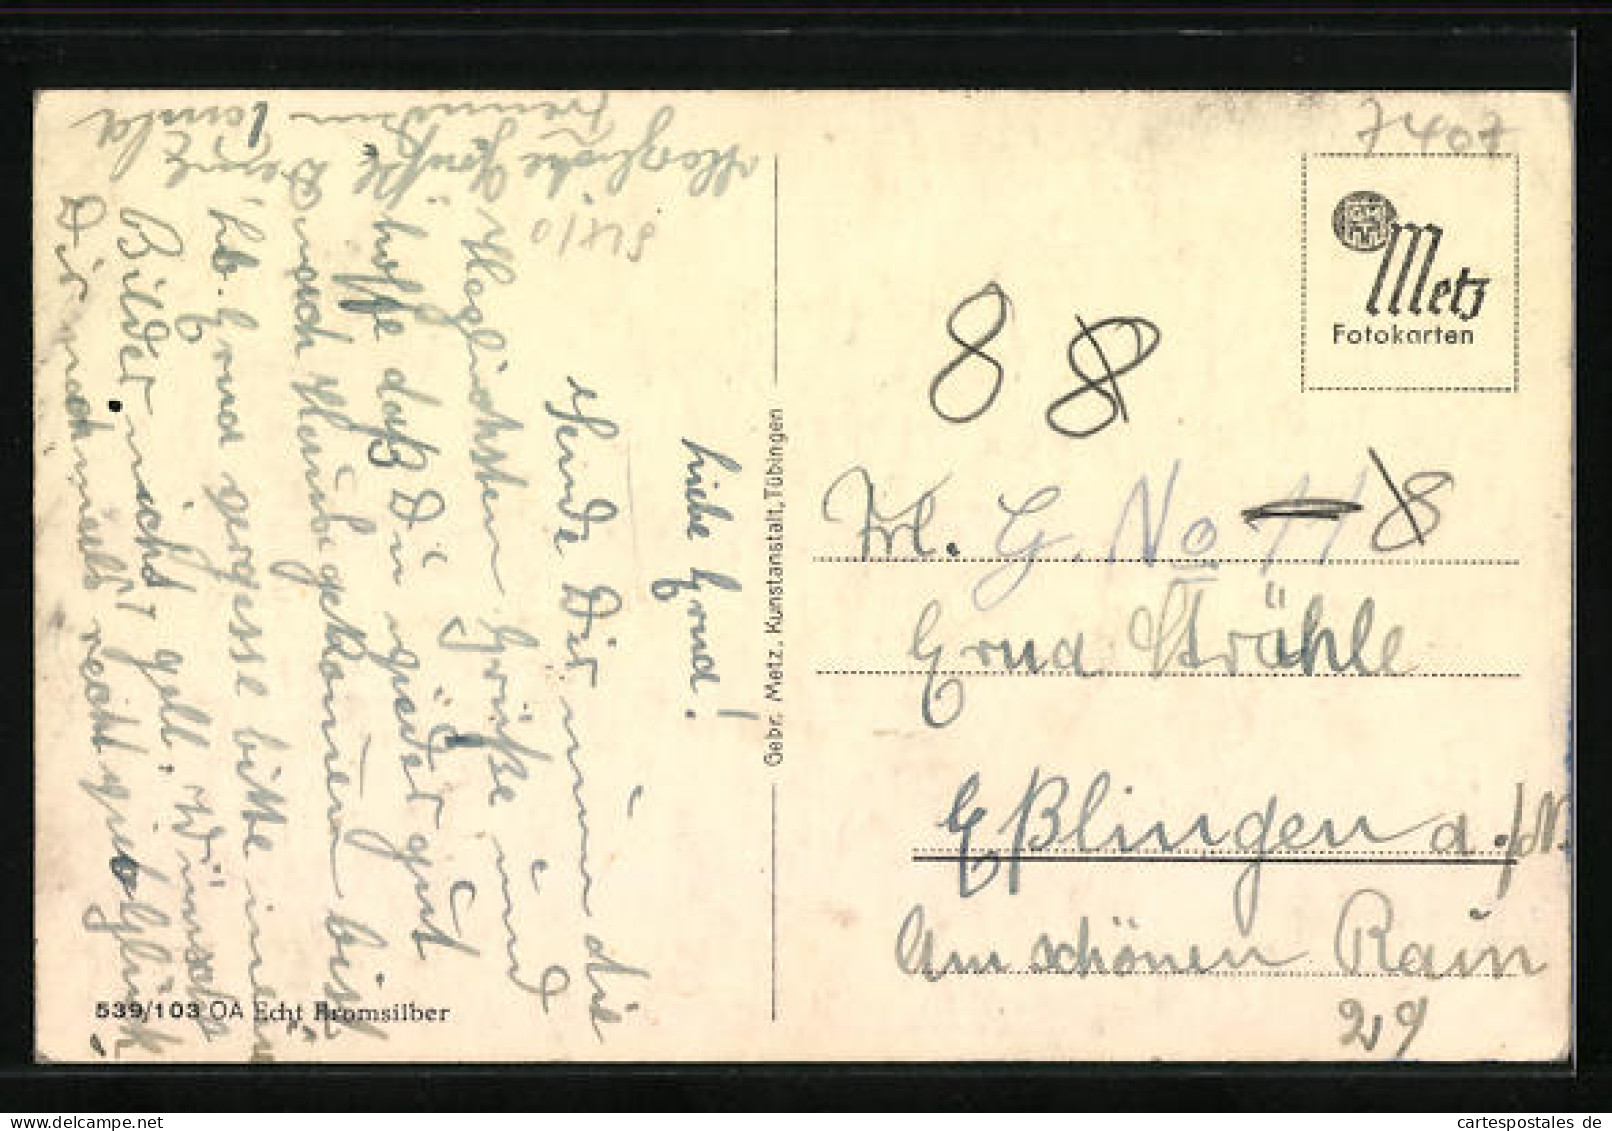 Liebe Erna!
Sende Dir nun die
Herzlichsten Grüße und
hoffe daß Du wieder gut
nach Hause gekommen bist
Lb. Erna vergesse bitte meine
Bilder nicht gell. Wünsche
Dir nochmals recht viel Glück
Herzliche Grüße Deine
Freundin
7407
Metz
Fotokarten
88
Frl. G. No 11 8
Erna Strähle
Eßlingen a./N.
Am schönen Rain
29
Gebr. Metz, Kunstanstalt, Tübingen
539/103 OA Echt Bromsilber
cartespostales de